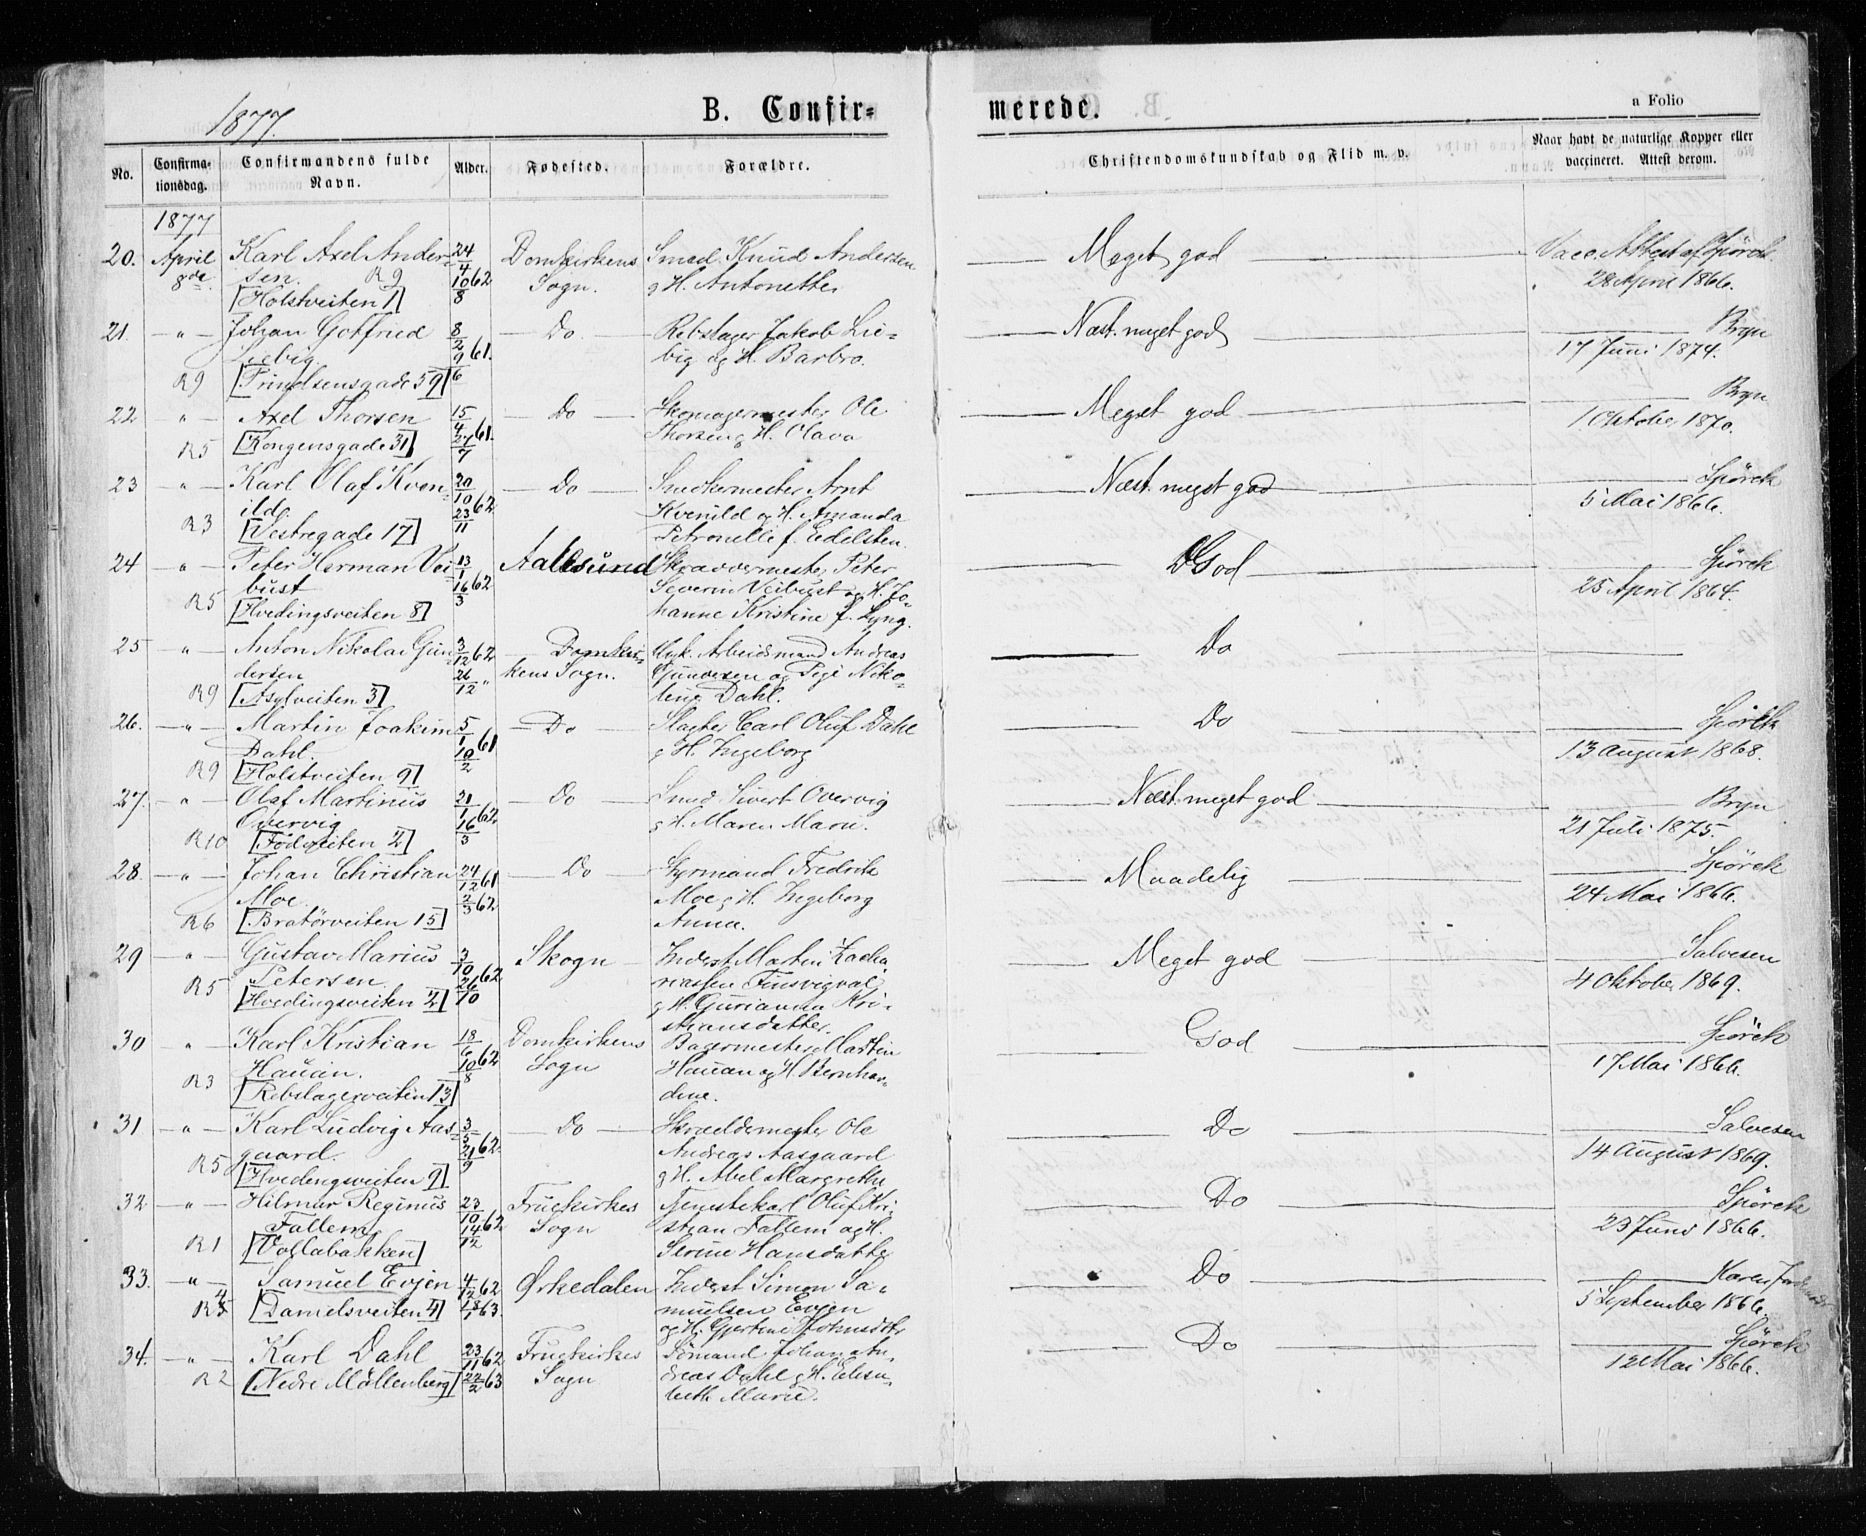 1877.
B. Confir=
merede.
a Folio
No.
Confirma-
tionsdag.
Confirmandens fulde
Navn.
Alder.
Fødested.
Forældre.
Christendomskundskab og Flid m. v.
Naar havt de naturlige Kopper eller
vaccineret. Attest derom.
1877
20. April Karl Axel Ander- 24/4 Domkirkens Smed Knud Andersen Meget god Vacc. Attest af Spörck
8de sen. R9 62 Sogn. & H. Antonette 28 April 1866.
[Holstveiten 1] 10/8
21. " Johan Gotfried 8/2 Do Rebslager Jakob Lie- Næst. meget god Bryn
Liebig. 61. big og H. Barbro. 17 Juni 1874.
R9 [Prindsensgade 59] 9/6
22 " Axel Thorsen 15/4 Do Skomagermester Ole Meget god Bryn
R5 [Kongensgade 31] 61. 27/7 Thorsen & H. Olava 1 Oktober 1870.
23 " Karl Olaf Kven- 20/10 Do Snedkermester Arnt Næst. meget god Spörck
ild. 62 Kvenild og H. Amanda 5 Mai 1866.
R3 [Vestregade 17] 23/11 Petronelle f. Edelsten.
24 " Peter Herman Vei- 13/1 Aalesund Skrædermester Peter God Spörck
bust 62 Severin Veibust og H. Jo- 25 April 1864.
R5 [Hvedingsveiten 8] 16/3 hanne Kristine f. Lyng.
25 " Anton Nikolai Gun- 3/12 62 Domkir- Ugk. Arbeidsmand Andreas Do
dersen 26/12 " kens Sogn. Gundersen og Pige Niko-
R9 [Asylveiten 3] line Dahl.
26. " Martin Joakim 5/1 Do Slagter Carl Oluf Dahl Do Spörck
Dahl. 61 & H. Ingeborg 13 August 1868.
R9 [Holstveiten 9] 10/2
27. " Olaf Martinus 21/1 Do Smed Sivert Overvig Næst. meget god Bryn
Overvig 62 & H. Maren Marie. 21 Juli 1875.
R10 [Fødveiten 2] 16/3
28. " Johan Christian 24/12 61 Do Styrmand Fredrik Maadelig Spörck
Moe 2/3 62 Moe & H. Ingeborg 24 Mai 1866.
R6 [Bratørveiten 15] Anna.
29 " Gustav Marius 3/10 Skogn Inderst Martin Zacha- Meget god Salvesen
R5 Petersen 62 riassen Finsvigval 4 Oktober 1869.
[Hvedingsveiten 2] 26/10 & H. Gurianna Kri-
stiansdatter.
30 " Karl Kristian 18/6 Domkirkens Bagermester Martin God Spörck
Hauan. 62 Sogn Hauan og H. Bernhar- 17 Mai 1866.
R3 [Rebslagerveiten 13] 10/8 dine.
31 " Karl Ludvig Aas- 3/5 Do Skræddermester Ole Do Salvesen
gaard. 62 Andreas Aasgaard 14 August 1869.
R5 [Hvedengsveiten 9] 21/9 & H. Abel Margrethe
32 " Hilmar Reginus 23/10 Fruekirkes Tjenestekarl Oluf Kri- Do Spörck
Fallem 62 Sogn stian Fallem og H. 23 Juni 1866.
R1 [Vollabakken] 14/12 Serine Hansdatter
33. " Samuel Evjen 4/12 62 Ørkedalen Inderst Simon Sa- Do Karen
R4 [Danielsveiten 4] 63. muelsen Evjen 5 September 1866.
og H. Gjertine
34. " Karl Dahl 23/11 62 Fruekirkes Sömand Johan An- Do Spörck
R2 [Nedre Möllenberg] 22/2 63 Sogn dreas Dahl & H. Elisa- 12 Mai 1866.
beth Marie.